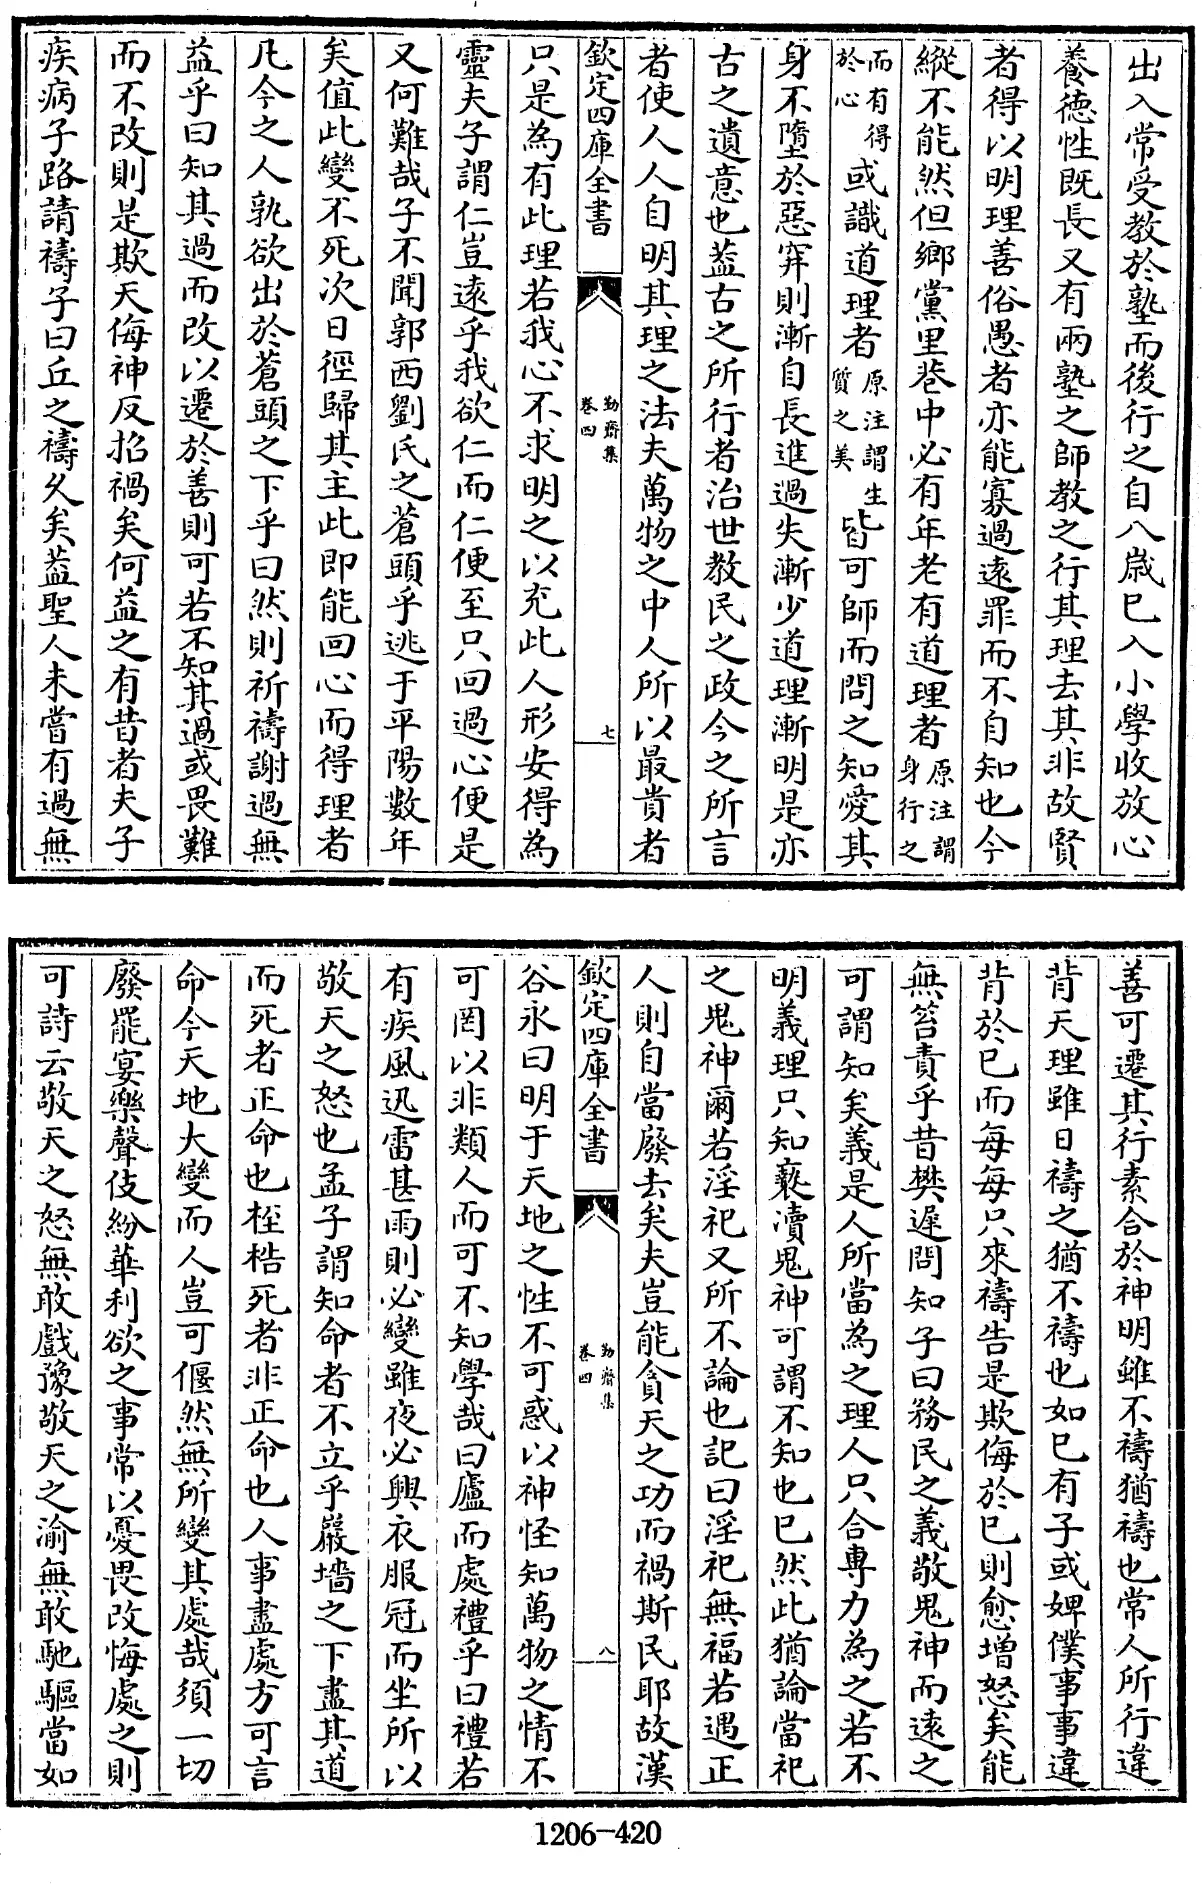 出入常受教於塾而後行之自八歲已入小學收放心
養德性既長又有兩塾之師教之行其理去其非故賢
者得以明理善俗愚者亦能寡過遠罪而不自知也今
縱不能然但鄉黨里巷中必有年老有道理者原注謂身行之
而有得於心或識道理者原注謂生質之美皆可師而問之知愛其
身不墮於惡穽則漸自長進過失漸少道理漸明是亦
古之遺意也葢古之所行者治世教民之政今之所言
者使人人自明其理之法夫萬物之中人所以最貴者
欽定四庫全書
勤齋集
卷四
七
只是為有此理若我心不求明之以充此人形安得為
靈夫子謂仁豈遠乎我欲仁而仁便至只回過心便是
又何難哉子不聞郭西劉氏之蒼頭乎逃于平陽數年
矣值此變不死次日徑歸其主此即能回心而得理者
凡今之人孰欲出於蒼頭之下乎曰然則祈禱謝過無
益乎曰知其過而改以遷於善則可若不知其過或畏難
而不改則是欺天侮神反招禍矣何益之有昔者夫子
疾病子路請禱子曰丘之禱久矣葢聖人未嘗有過無
善可遷其行素合於神明雖不禱猶禱也常人所行違
背天理雖日禱之猶不禱也如已有子或婢僕事事違
背於已而每每只來禱告是欺侮於已則愈增怒矣能
無笞責乎昔樊遲問知子曰務民之義敬鬼神而遠之
可謂知矣義是人所當為之理人只合專力為之若不
明義理只知褻瀆鬼神可謂不知也已然此猶論當祀
之鬼神爾若淫祀又所不論也記曰淫祀無福若遇正
人則自當廢去矣夫豈能貪天之功而禍斯民耶故漢
欽定四庫全書
勤齋集
卷四
八
谷永曰明于天地之性不可惑以神怪知萬物之情不
可罔以非類人而可不知學哉曰廬而處禮乎曰禮若
有疾風迅雷甚雨則必變雖夜必興衣服冠而坐所以
敬天之怒也孟子謂知命者不立乎巖墻之下盡其道
而死者正命也桎梏死者非正命也人事盡處方可言
命今天地大變而人豈可偃然無所變其處哉須一切
廢罷宴樂聲伎紛華利欲之事常以憂畏改悔處之則
可詩云敬天之怒無敢戲豫敬天之渝無敢馳驅當如
1206-420